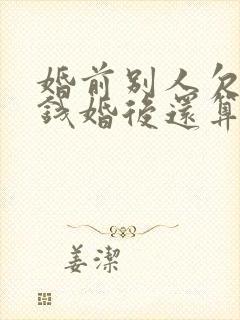 婚前别人欠
錢婚後還算
姜潔